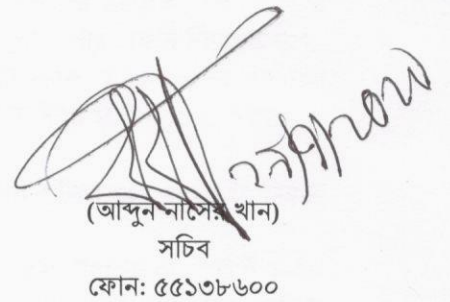 (আব্দুন নাসের খান)
সচিব
ফোন: ৫৫১৩৮৬০০